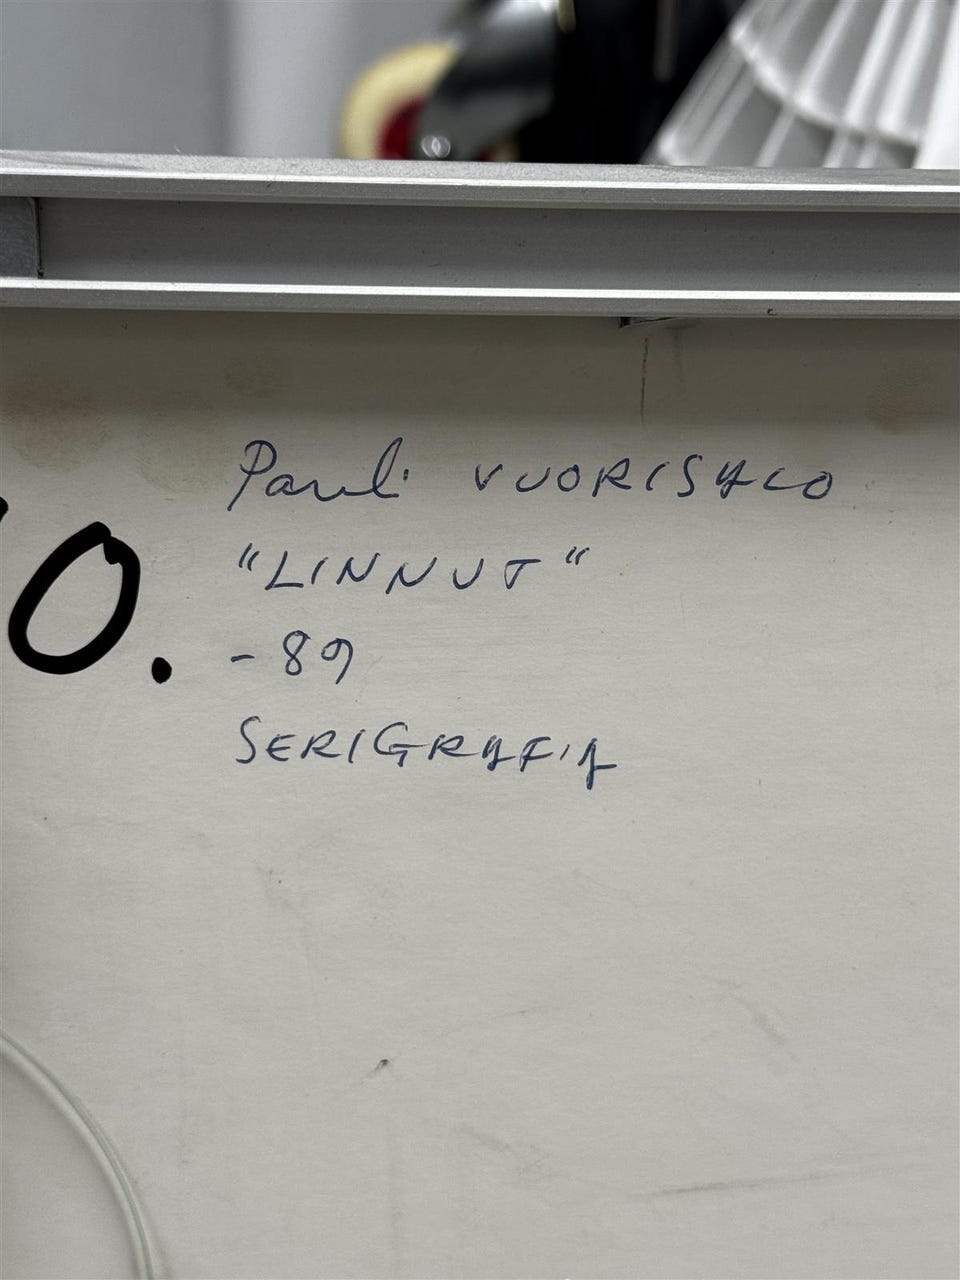 Pauli VUORISALO
"LINNUT"
0.
-89
SERIGRAFIA